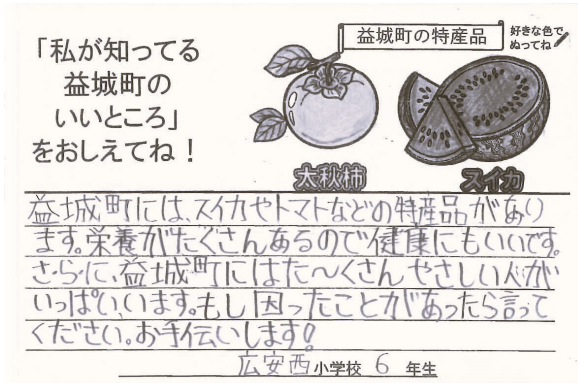 「私が知ってる
益城町の
いいところ」
をおしえてね！
益城町の特産品
好きな色で
ぬってね
太秋柿
スイカ
益城町には、スイカやトマトなどの特産品があり
ます。栄養がたくさんあるので健康にもいいです。
さらに、益城町にはた～くさんやさしい人が
いっぱいいます。もし困ったことがあったら言って
ください。お手伝いします!
広安西小学校 6 年生